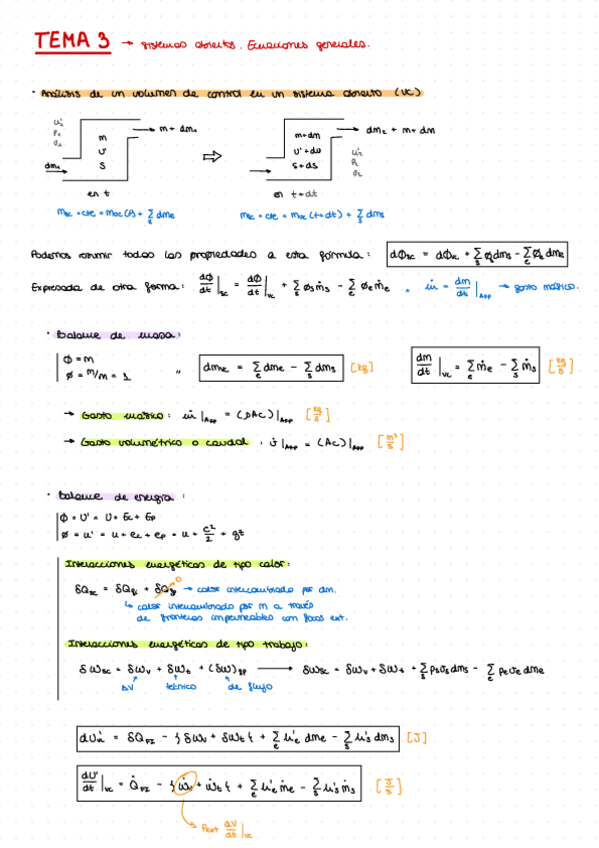 TEMA 3 → sistemas abiertos. Ecuaciones generales.
· Análisis de un volumen de control en un sistema abierto (VC)
m + dm₂
m
U'
S
dm₁
en t
⇒
dm₂ + m + dm
m+dm
U'+dU
S+dS
en t+dt
m_sc = cte = m_vc(t) + Σ_e dm_e
m_sc = cte = m_vc(t+dt) + Σ_s dm_s
Podemos resumir todas las propiedades a esta fórmula: dΦ_sc = dΦ_vc + Σ_s ϕ_s dm_s − Σ_e ϕ_e dm_e
Expresada de otra forma: dΦ/dt|_sc = dΦ/dt|_vc + Σ_s ϕ_s ṁ_s − Σ_e ϕ_e ṁ_e , ṁ = dm/dt|_App → gasto másico.
· Balance de masa:
Φ = m
ϕ = m/m = 1 " dm_vc = Σ_e dm_e − Σ_s dm_s [kg] dm/dt|_vc = Σ_e ṁ_e − Σ_s ṁ_s [kg/s]
→ Gasto másico: ṁ|_App = (DAC)|_App [kg/s]
→ Gasto volumétrico o caudal: v̇|_App = (AC)|_App [m³/s]
· Balance de energía:
Φ = U' = U + Ec + Ep
ϕ = u' = u + ec + ep = u + c²/2 + gz
Interacciones energéticas de tipo calor:
δQ_sc = δQ_fi + δQ_fp → 0 → calor intercambiado por dm.
↳ calor intercambiado por m a través
de fronteras impermeables con focos ext.
Interacciones energéticas de tipo trabajo:
δW_sc = δW_v + δW_t + (δW)_fp → δW_sc = δW_v + δW_t + Σ_s p_s v_s dm_s − Σ_e p_e v_e dm_e
ΔV técnico de flujo
dU'_vc = δQ_FI − {δW_v + δW_t} + Σ_e h'_e dm_e − Σ_s h'_s dm_s [J]
dU'/dt|_vc = Q̇_FI − {Ẇ_v + Ẇ_t} + Σ_e h'_e ṁ_e − Σ_s h'_s ṁ_s [J/s]
Pext dV/dt|_vc